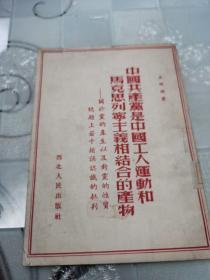 中國共產黨是中國工人運動和
馬克思列寧主義相結合的產物
——關於黨的產生以及對黨的性質
問題上若干錯誤認識的批判
西北人民出版社